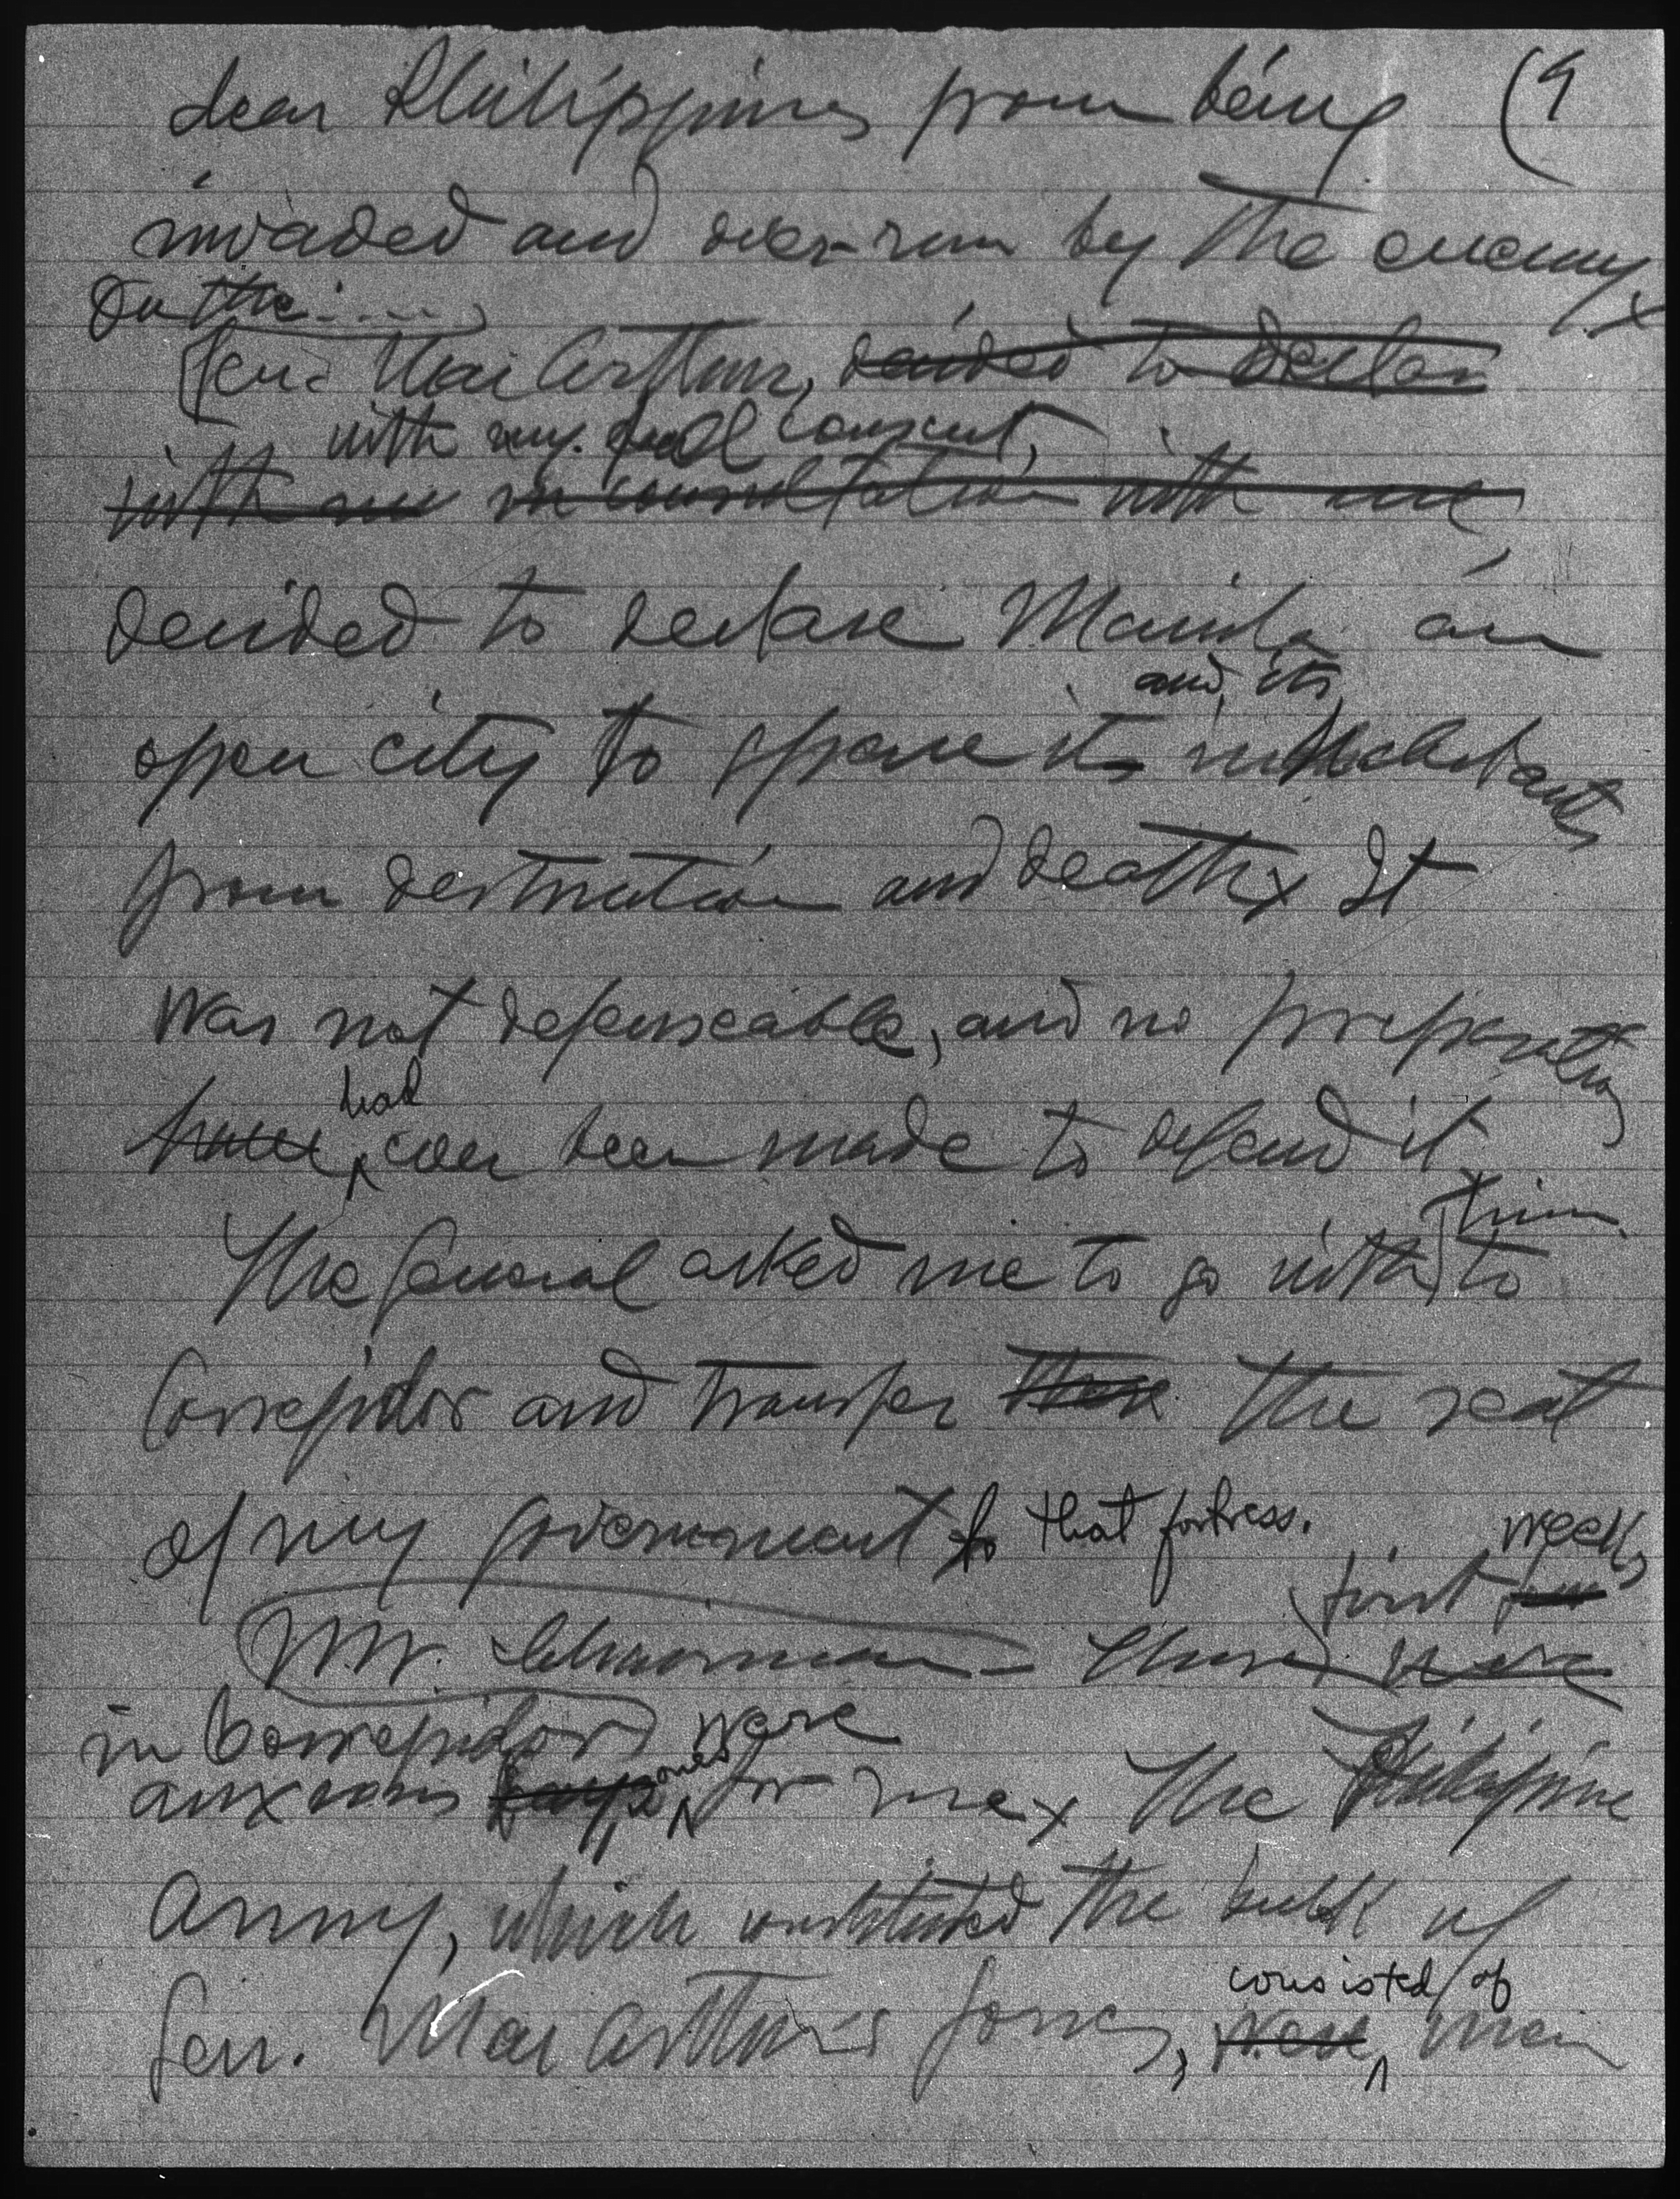 dear Philippines from being (9
invaded and over-run by the enemy x
On the ....,
Gen. MacArthur, decided to declare
with my full consent,
with me in consultation with me,
decided to declare Manila an
and its
open city to spare its inhabitants
from destruction and death x It
was not defenseable, and no preparation
had
have ever been made to defend it
him
The General asked me to go with to
Corregidor and transfer there the seat
of my government to that fortress.
weeks
first few
Mr. Chairman - Those were
in Corregidor were
anxious days ones for me x The Philippine
Army, which constituted the bulk of
consisted of
Gen. MacArthur's forces, were men